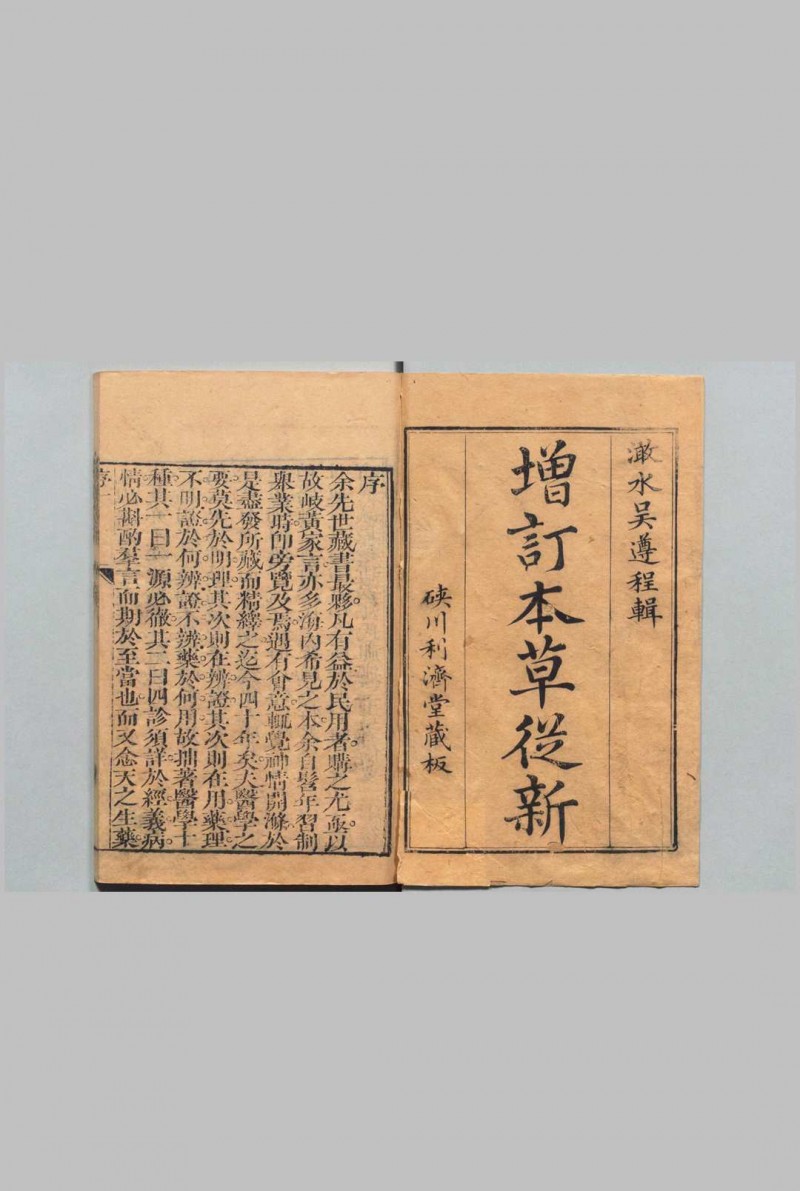 澉水吴遵程輯
增訂本草從新
硤川利濟堂藏板
序
余先世藏書最夥凡有益於民用者購之尤亟以
故岐黃家言亦多海內希見之本余自髫年習制
舉業時卽旁覽及焉遇有會意輒覺神情開滌於
是盡發所藏而精繹之迄今四十年矣夫醫學之
要莫先於明理其次則在辨證其次則在用藥理
不明證於何辨證不辨藥於何用故拙著醫學十
種其一曰一源必徹其二曰四診須詳於經義病
情必斟酌羣言而期於至當也而又念天之生藥
序一